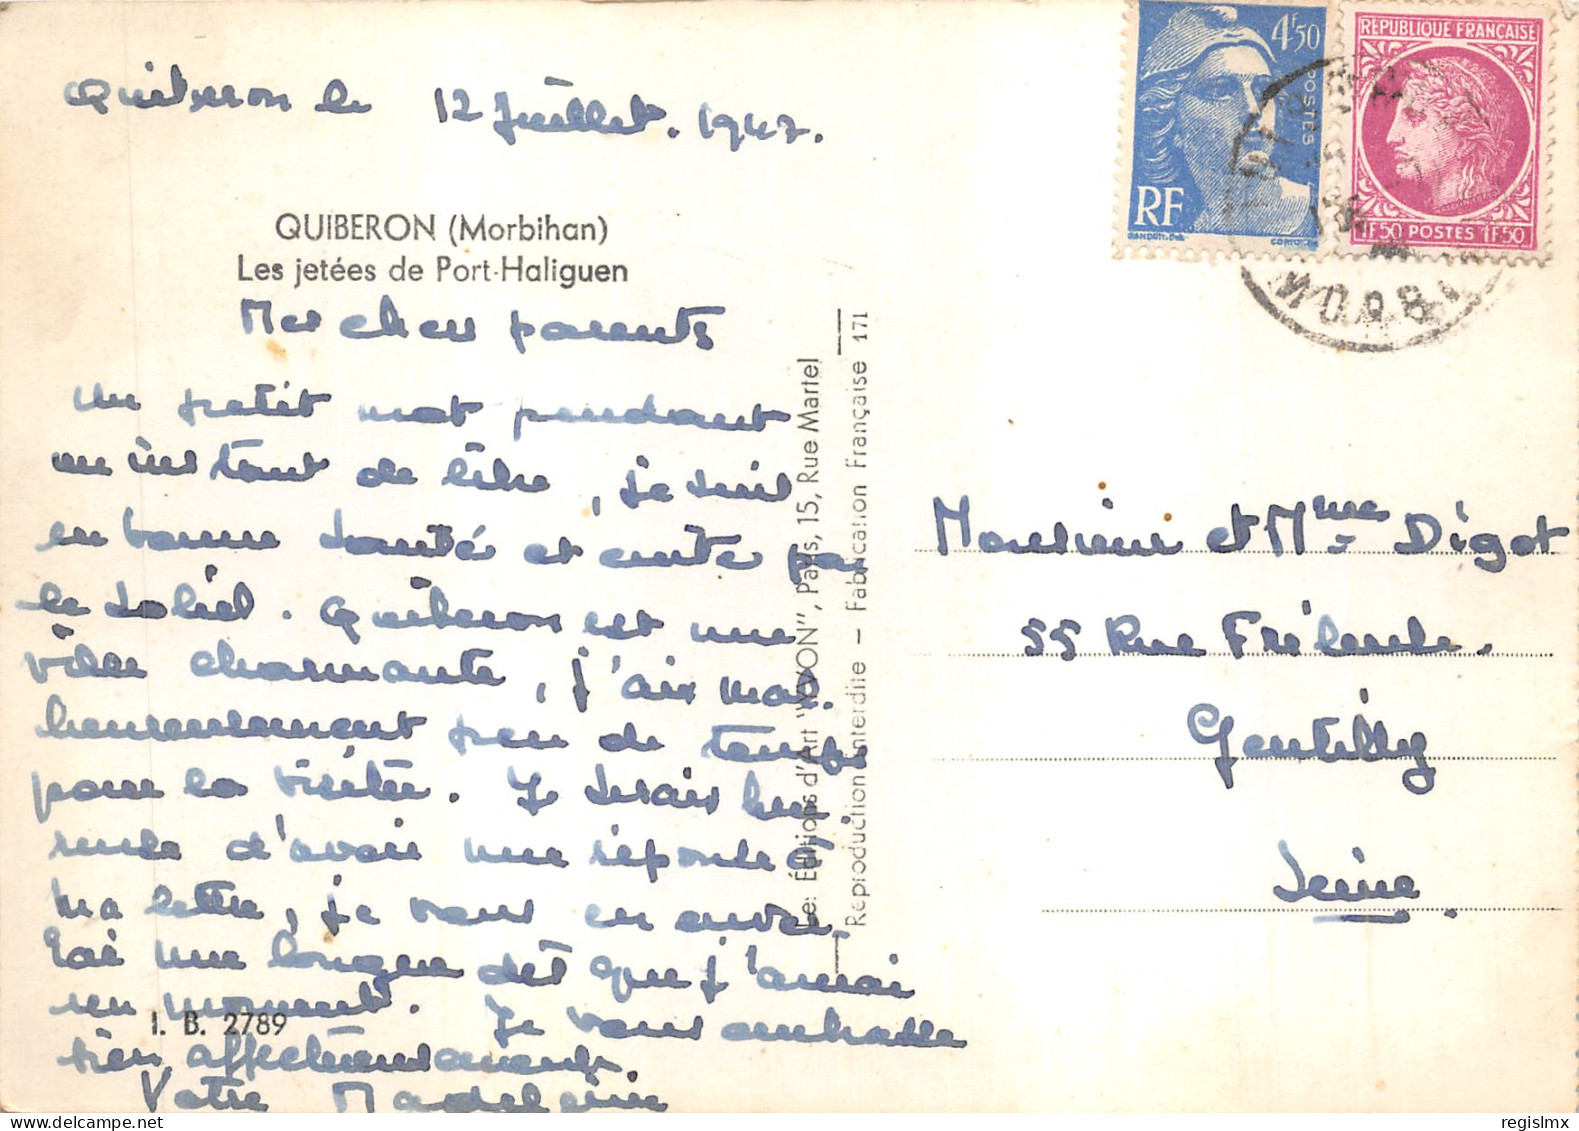 Quiberon le 12 Juillet. 1947.
QUIBERON (Morbihan)
Les jetées de Port-Haliguen
Mes chers parents
un petit mot pendant
un instant de libre, je suis
en bonne santé et cuite par
le soleil. Quiberon est une
ville charmante, j'ais mal.
heureusement peu de temps
pour la visiter. Je serais heu
reuse d'avoir une réponse à
ma lettre, je vous en enver
rai une longue dès que j'aurai
un moment. Je vous embrasse
bien affectueusement.
Votre Madeleine
I. B. 2789
Éditions d'Art "YVON", Paris, 15, Rue Martel
Reproduction interdite — Fabrication Française 171
4F50
POSTES
RF
GANDON DEL.
CORTOT SC.
RÉPUBLIQUE FRANÇAISE
1F50 POSTES 1F50
MORBI
Monsieur et Mme Digot
55 Rue Frileuse.
Gentilly
Seine.
regislmx — delcampe.net